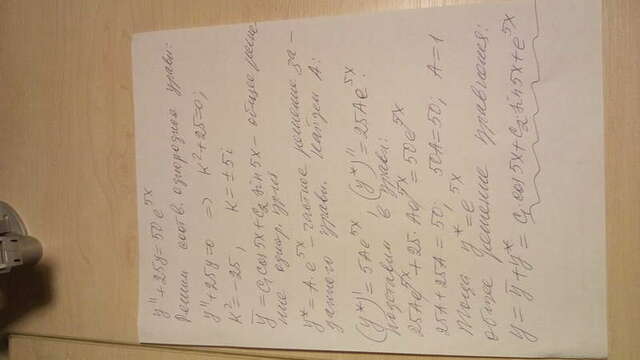 y'' + 25y = 50e^5x
Решим соотв. однородное уравн:
y'' + 25y = 0 => K² + 25 = 0;
K² = -25, K = ±5i
ȳ = C₁cos5x + C₂sin5x - общее реше-
ние однор. ур-ия
y* = A·e^5x - частное решение за-
данного уравн. Найдем A:
(y*)' = 5Ae^5x, (y*)'' = 25Ae^5x.
подставим в уравн:
25Ae^5x + 25·Ae^5x = 50e^5x
25A + 25A = 50; 50A = 50; A = 1
Тогда y* = e^5x
общее решение уравнения:
y = ȳ + y* = C₁·cos5x + C₂·sin5x + e^5x